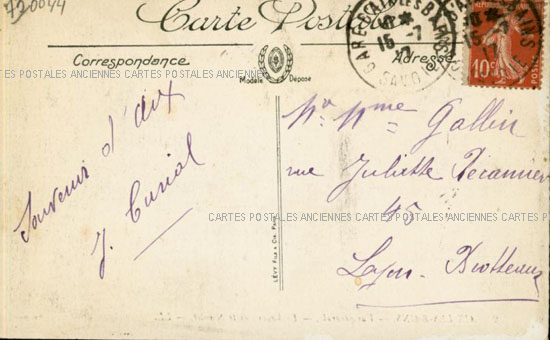 720044
Carte Postale
GARE D'AIX-LES-BAINS
10 *
15 -7
17
SAVOIE
10c
Correspondance
Adresse
Modèle Déposé
CARTES POSTALES ANCIENNES CARTES POSTALES ANCIENNES CARTES POSTALES ANCIENNES CARTES POSTALES
Souvenir d'aix
J. Curial
Mr Mme Gallin
rue Juliette Récamier
45
Lyon-Brotteaux
CARTES POSTALES ANCIENNES CARTES POSTALES ANCIENNES CARTES POSTALES
LÉVY FILS & Cie, PARIS